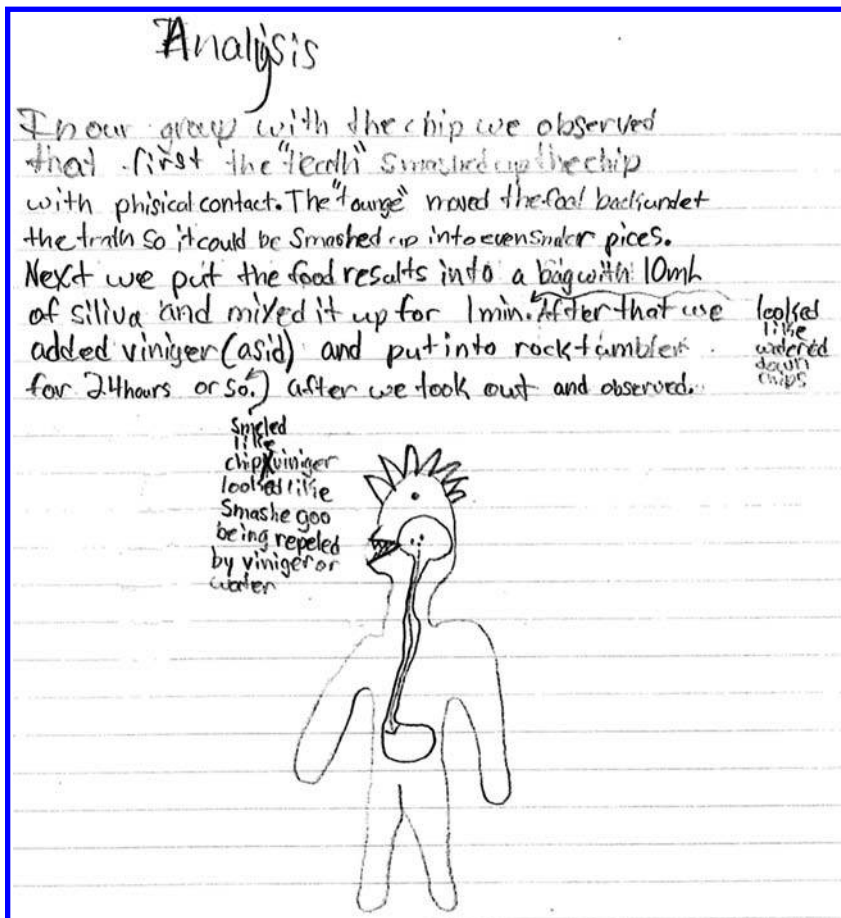 Analysis
In our group with the chip we observed
that first the "teeath" smashed up the chip
with phisical contact. The "tounge" moved the food back undet
the teath so it could be smashed up into even smaler pices.
Next we put the food results into a bag with 10mL
of siliva and mixed it up for 1min. After that we
added viniger (asid) and put into rock tambler
for 24hours or so. after we took out and observed.
looked
like
watered
down
chips
Smeled
like
chip viniger
looked like
Smashe goo
being repeled
by viniger or
water